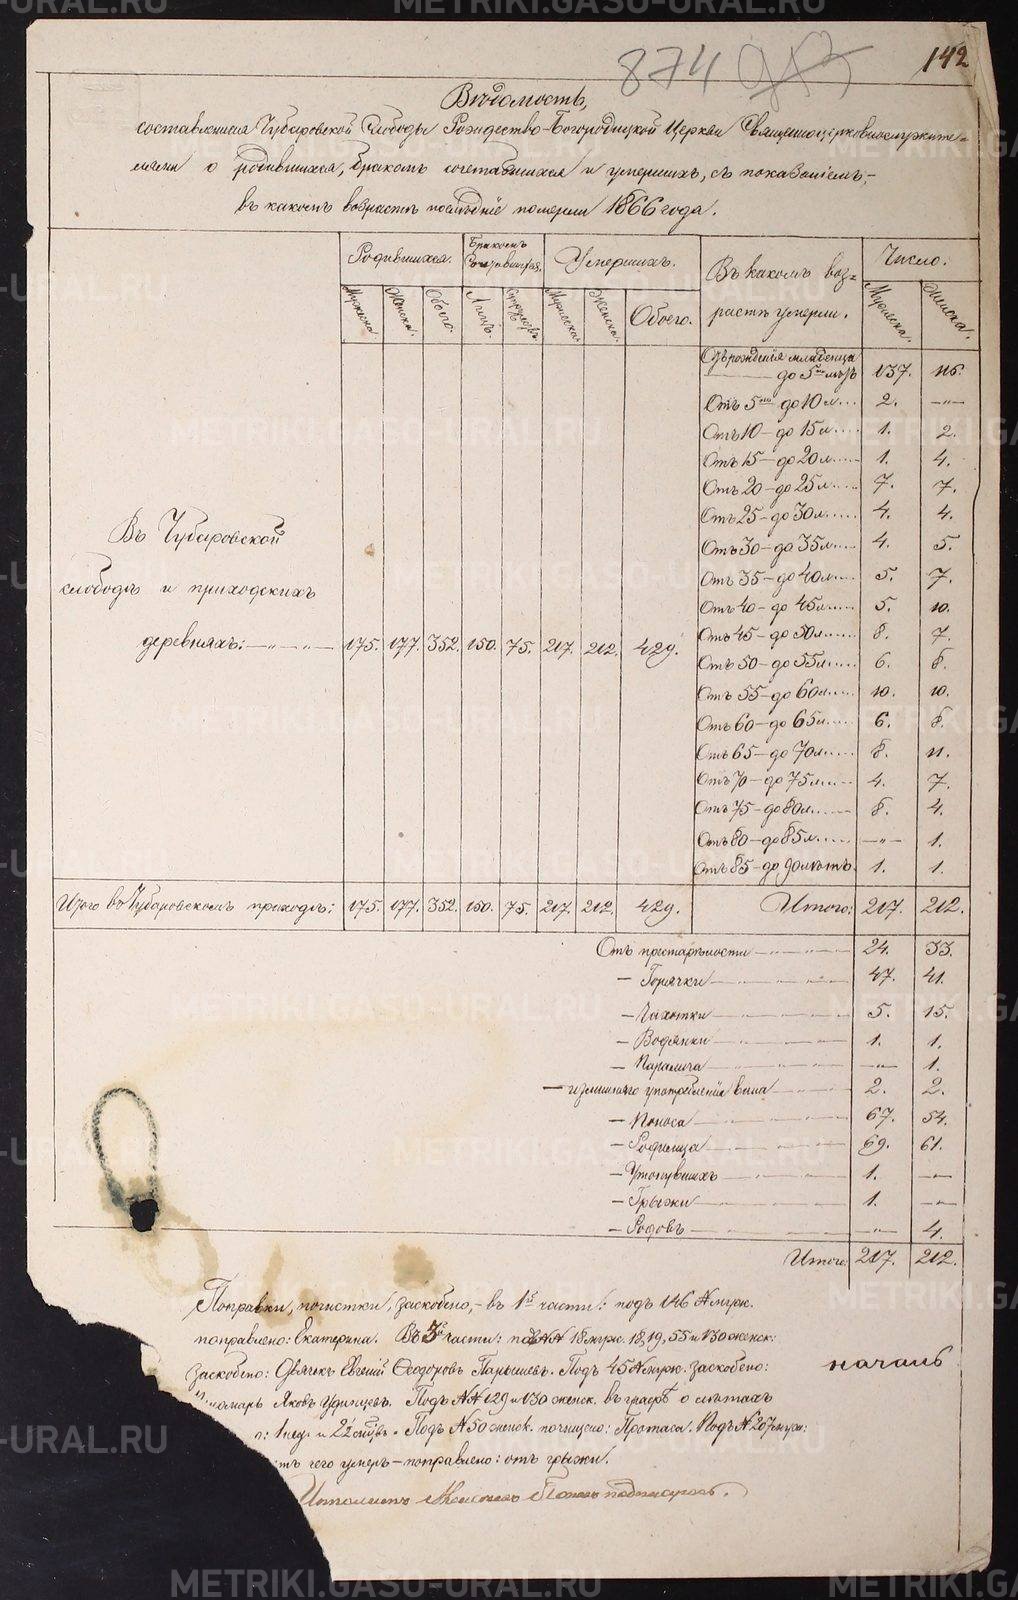 142
874
Вѣдомость,
составленная Чубаровской Слободы Рождество-Богородицкой Церкви Священноцерковнослужите-
лями о родившихся, бракомъ сочетавшихся и умершихъ, съ показаніемъ,-
въ какомъ возрастѣ послѣдніе померли 1866 года.
Родившихся. Бракомъ Сочетавшихся. Умершихъ. Въ какомъ воз-растѣ умерли. Число:
Мужеска. Женска. Обоего. Лицъ. Супружествъ. Мужеска. Женска. Обоего. Мужеска. Женска.
Отъ рожденія младенца до 5ти лѣтъ 137. 116.
Отъ 5ти до 10 л.... 2. —„—
Отъ 10 - до 15 л.... 1. 2.
Отъ 15 - до 20 л.... 1. 4.
Отъ 20 - до 25 л.... 7. 7.
Отъ 25 - до 30 л.... 4. 4.
Отъ 30 - до 35 л.... 4. 5.
Отъ 35 - до 40 л.... 5. 7.
Отъ 40 - до 45 л.... 5. 10.
Отъ 45 - до 50 л.... 8. 7.
Отъ 50 - до 55 л.... 6. 8.
Отъ 55 - до 60 л.... 10. 10.
Отъ 60 - до 65 л.... 6. 8.
Отъ 65 - до 70 л.... 8. 11.
Отъ 70 - до 75 л.... 4. 7.
Отъ 75 - до 80 л.... 8. 4.
Отъ 80 - до 85 л.... —„— 1.
Отъ 85 - до 90 лѣтъ. 1. 1.
Въ Чубаровской
слободѣ и приходскихъ
деревняхъ: —„—„— 175. 177. 352. 150. 75. 217. 212. 429.
Итого въ Чубаровскомъ приходѣ: 175. 177. 352. 150. 75. 217. 212. 429. Итого: 217. 212.
Отъ престарѣлости 24. 33.
— Горячки 47. 41.
— Чахотки 5. 15.
— Водянки 1. 1.
— Паралича —„— 1.
— излишняго употребленія вина 2. 2.
— Поноса 67. 54.
— Родимца 69. 61.
— Утонувшихъ 1. —„—
— Грыжи 1. —„—
— Родовъ —„— 4.
Итого 217. 212.
Поправки, почистки, заскобено,- въ 1й части: подъ 146 № мужс.
поправлено: Екатерина. Въ 3й части: подъ №№ 18 мужс. 18, 19, 55 и 130 женск:
заскобено: Евгеній Ѳеодоровъ Парышевъ. Подъ 45 № мужс. заскобено:
Яковъ Удинцевъ. Подъ №№ 129 и 130 женск. въ графѣ о лѣтахъ
1 нед. и 22 Подъ № 50 женск. почищено: Протаса. Подъ № 207 мужс:
чего умеръ — поправлено: отъ грыжи.
началъ
METRIKI.GASO-URAL.RU